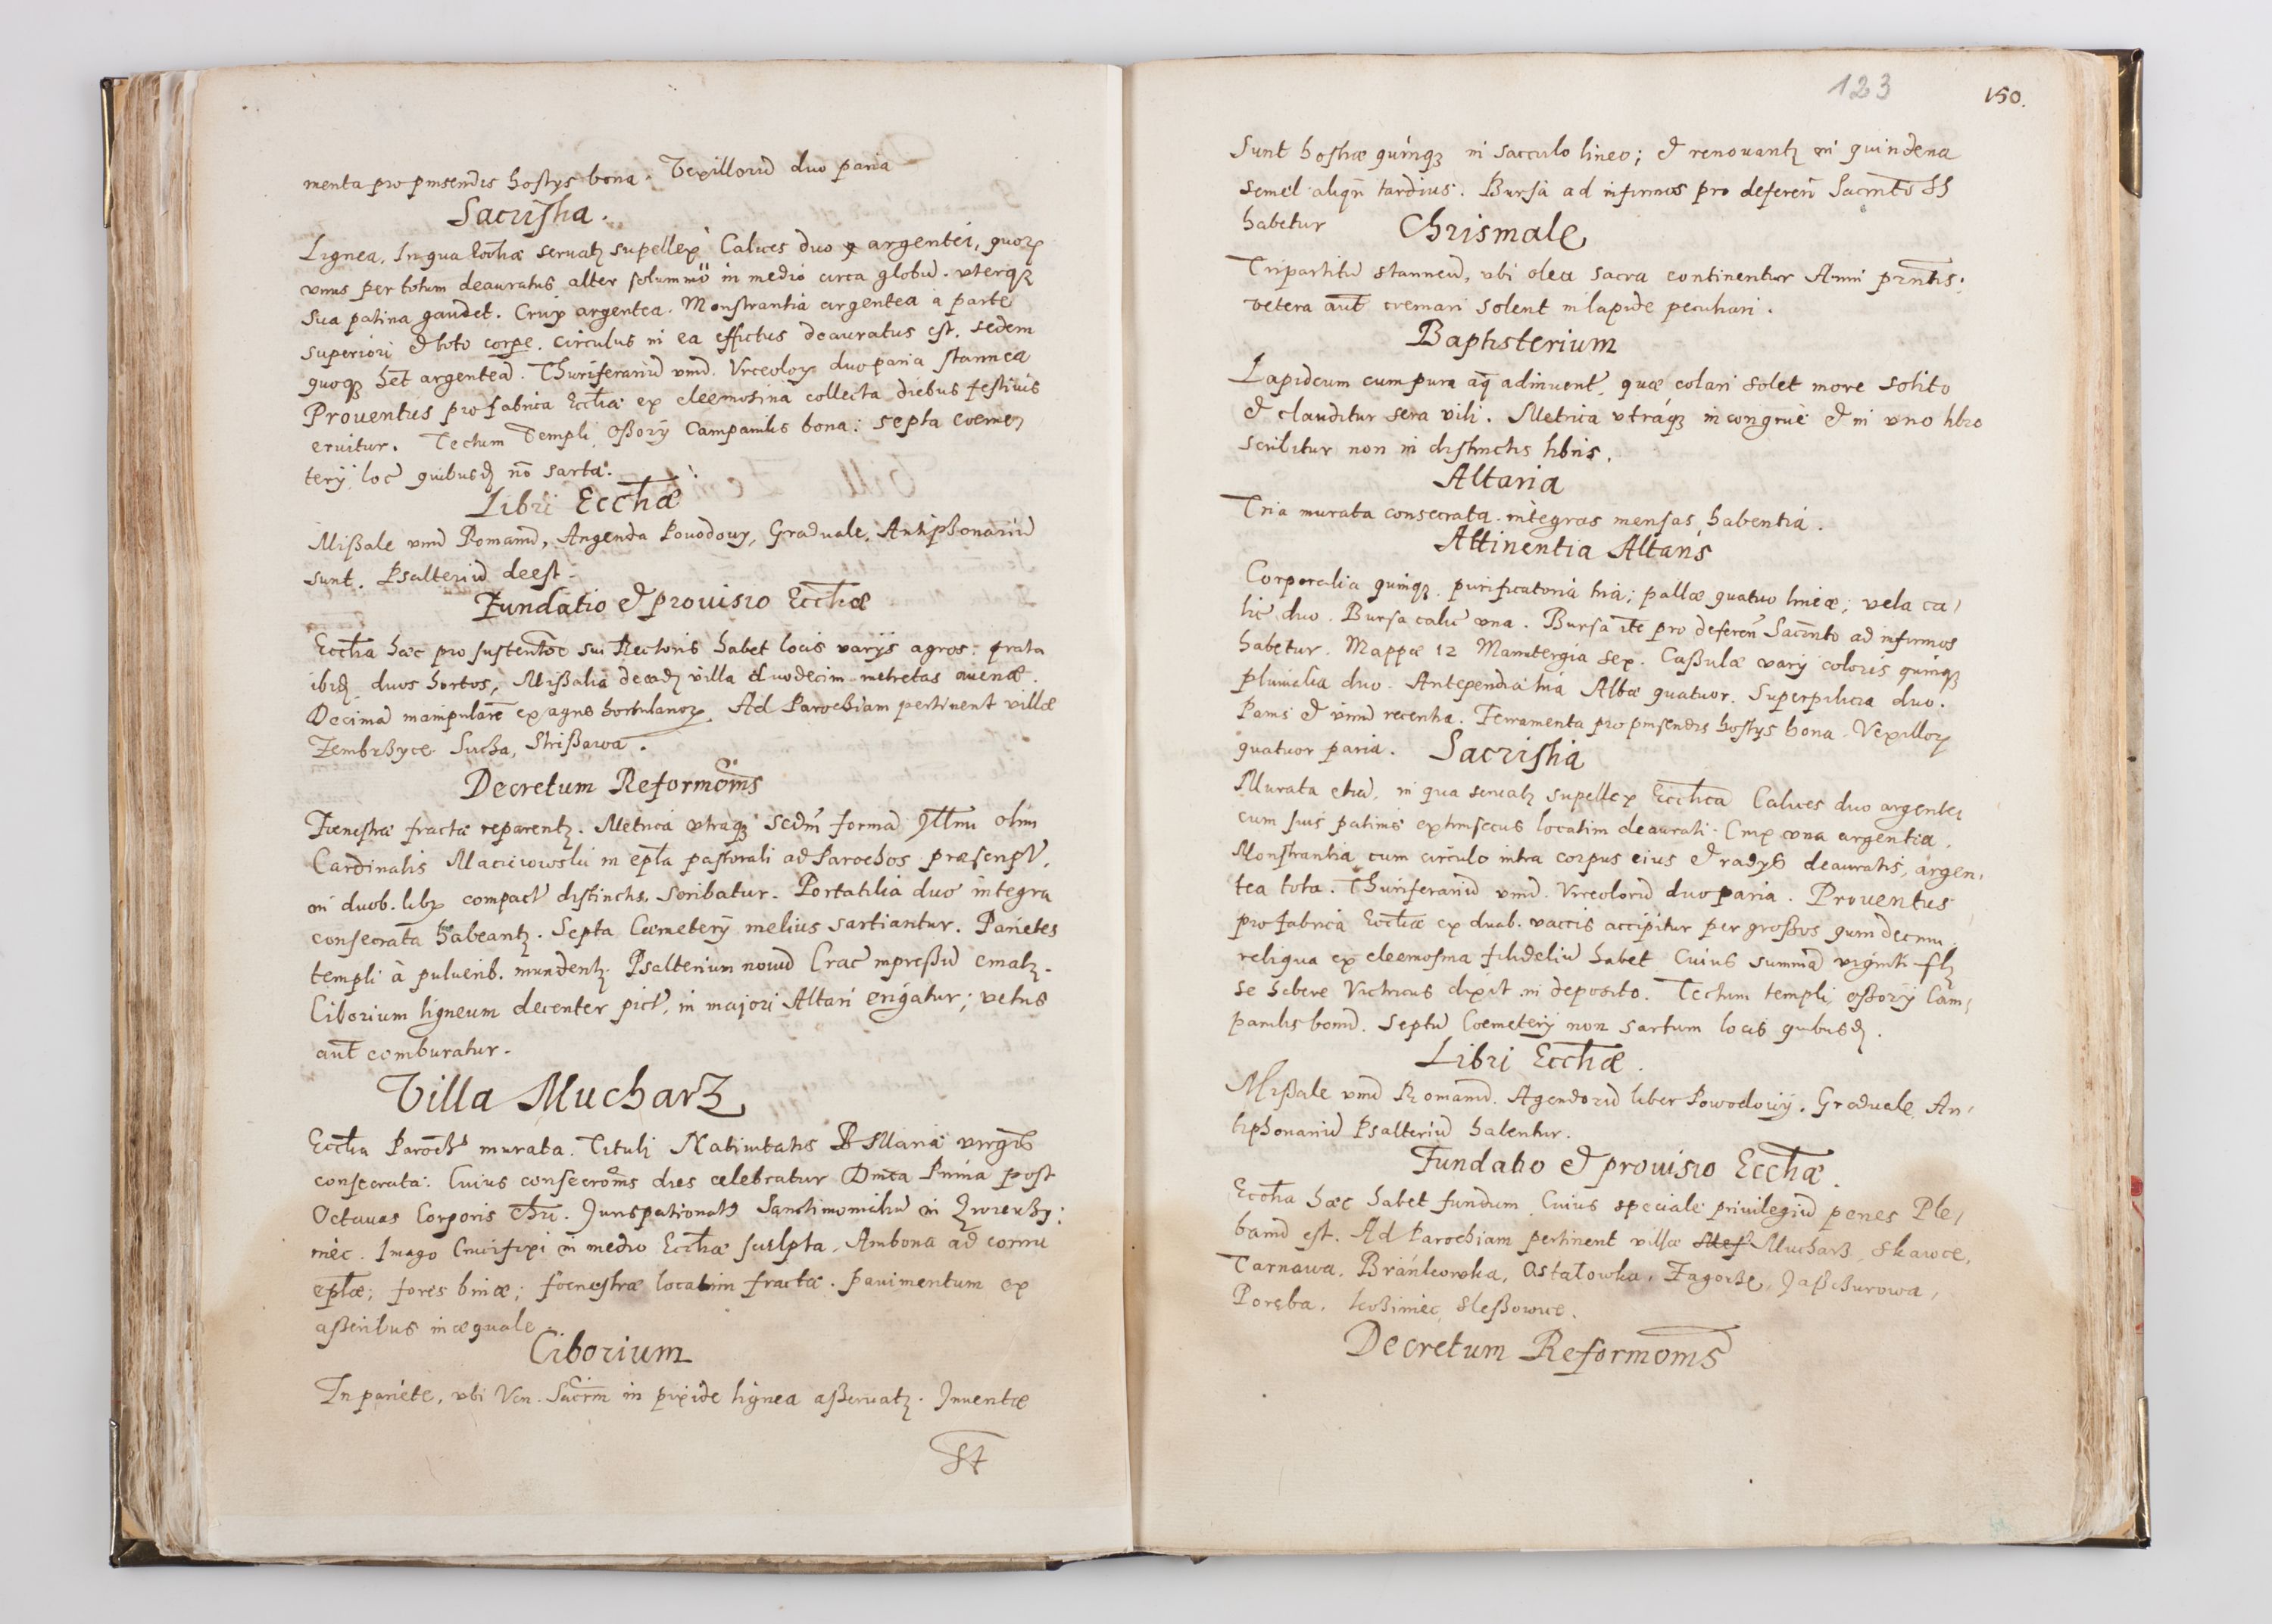 menta pro pinsendis hostys bona. Vexilloru duo paria
Sacristia.
Lignea, In qua Eccliae seruatz supellex Calices duo argentei, quorz
vnus per totum deauratus alter solummo in medio circa globu. vterqz
sua patina gaudet. Crux argentea. Monstrantia argentea a parte
superiori et toto corpe. circulus in ea effictus deauratus est, sedem
quoqz het argentea. Thuriferariu vnu. Vrceolorz duo paria stannea
Prouentus pro fabrica Eccliae ex eleemosina collecta diebus festiuis
eruitur. Tectum Templi, Oßorij Campanilis bona: septa coeme
terij loc quibusd no sarta.
Libri Eccliae
Mißale vnu Romanu, Angenda Pouodouy, Graduale, Antiphonariu
sunt. Psalteriu deest.
Fundatio et prouisio Eccliae
Ecclia haec pro sustentoe sui Rectoris habet locis varijs agros: prata
ibid duos hortos, Mißalia de ead villa duodecim metretas auenae.
Decima manipulare ex agris hortulanorz. Ad Parochiam pertinent villae
Zembrzyce Sucha, Strißawa.
Decretum Reformonis
Fenestrae fractae reparentz. Metrica vtraqz secdm forma Illmi olim
Cardinalis Macieiowski in epla pastorali ad Parochos praescript,
in duob. librz compact distinctis, scribatur. Portatilia duo integra
consecrata habeantz. Septa Coemeterij melius sartiantur. Parietes
templi à puluerib. mundentz. Psalterium nouu Crac impreßu ematz.
Ciborium ligneum decenter pict, in majori Altari erigatur; vetus
aut comburatur.
Villa Mucharz
Ecclia Paroch murata. Tituli Natiuitatis B Maria virgis
consecrata: Cuius consecronis dies celebratur Dnica Prima post
Octauas Corporis Chri. Jurispatronat Sanctimonialiu in Zwierzy:
niec. Imago Crucifixi in medio Eccliae sculpta, Ambona ad cornu
eplae; fores binae; foenestrae locatim fractae. pauimentum ex
aßeribus inaequale.
Ciborium
In pariete, vbi Ven. Sacrm in pixide lignea aßeruatz. Inuentae
st
123
150.
Sunt hostiae quinqz in sacculo lineo; et renouantz in quindena
semel aliqn tardius. Bursa ad infirmos pro deferen Sacmto SS
habetur Chrismale
Tripartitu stanneu, vbi olea sacra continentur Anni prntis;
vetera aut cremari solent in lapide peculiari.
Baptisterium
Lapideum cum pura aq adinuent, quae colari solet more solito
et clauditur sera vili. Metrica vtraqz incongrue et in vno libro
scribitur non in distinctis libris.
Altaria
Tria murata consecrata integras mensas habentia.
Attinentia Altaris
Corporalia quinqz. purificatoria tria; pallae quatuo lineae; vela ca
lic duo. Bursa calic vna. Bursa ite pro deferen Sacmto ad infirmos
habetur. Mappae 12 Manutergia sex. Caßulae varij coloris quinqz
pluuialia duo. Antependia tria Albae quatuor. Superpilicia duo.
Panis et vinu recentia. Ferramenta pro pinsendis hostys bona. Vexillorz
quatuor paria. Sacristia
Murata etia, in qua seruatz supellex Eccliea Calices duo argentei
cum suis patinis extrinsecus locatim deaurati. Crux vna argentea.
Monstrantia cum circulo intra corpus eius et radys deauratis, argen,
tea tota. Thuriferariu vnu. Vrceoloru duo paria. Prouentus
pro fabrica Eccliae ex duab. vaccis accipitur per großos quindecim,
reliqua ex eleemosina fidelium habet Cuius summa viginti flz
se habere Victricus dixit in deposito. Tectum templi, oßorij Cam,
panilis bonu. Septu Coemeterij non sartum locis quibusd.
Libri Eccliae.
Mißale vnu Romanu. Agendoru liber Powodowij. Graduale, An,
tiphonariu Psalteriu habentur.
Fundatio et prouisio Eccliae.
Ecclia haec habet fundum. Cuius speciale priuilegiu penes Ple,
banu est. Ad Parochiam pertinent villae Mucharz, Skawce,
Tarnawa, Bránkowka, Ostałowka, Zagorze, Jaßczurowa,
Poręba, Koßiniec, Sleßowice.
Decretum Reformonis